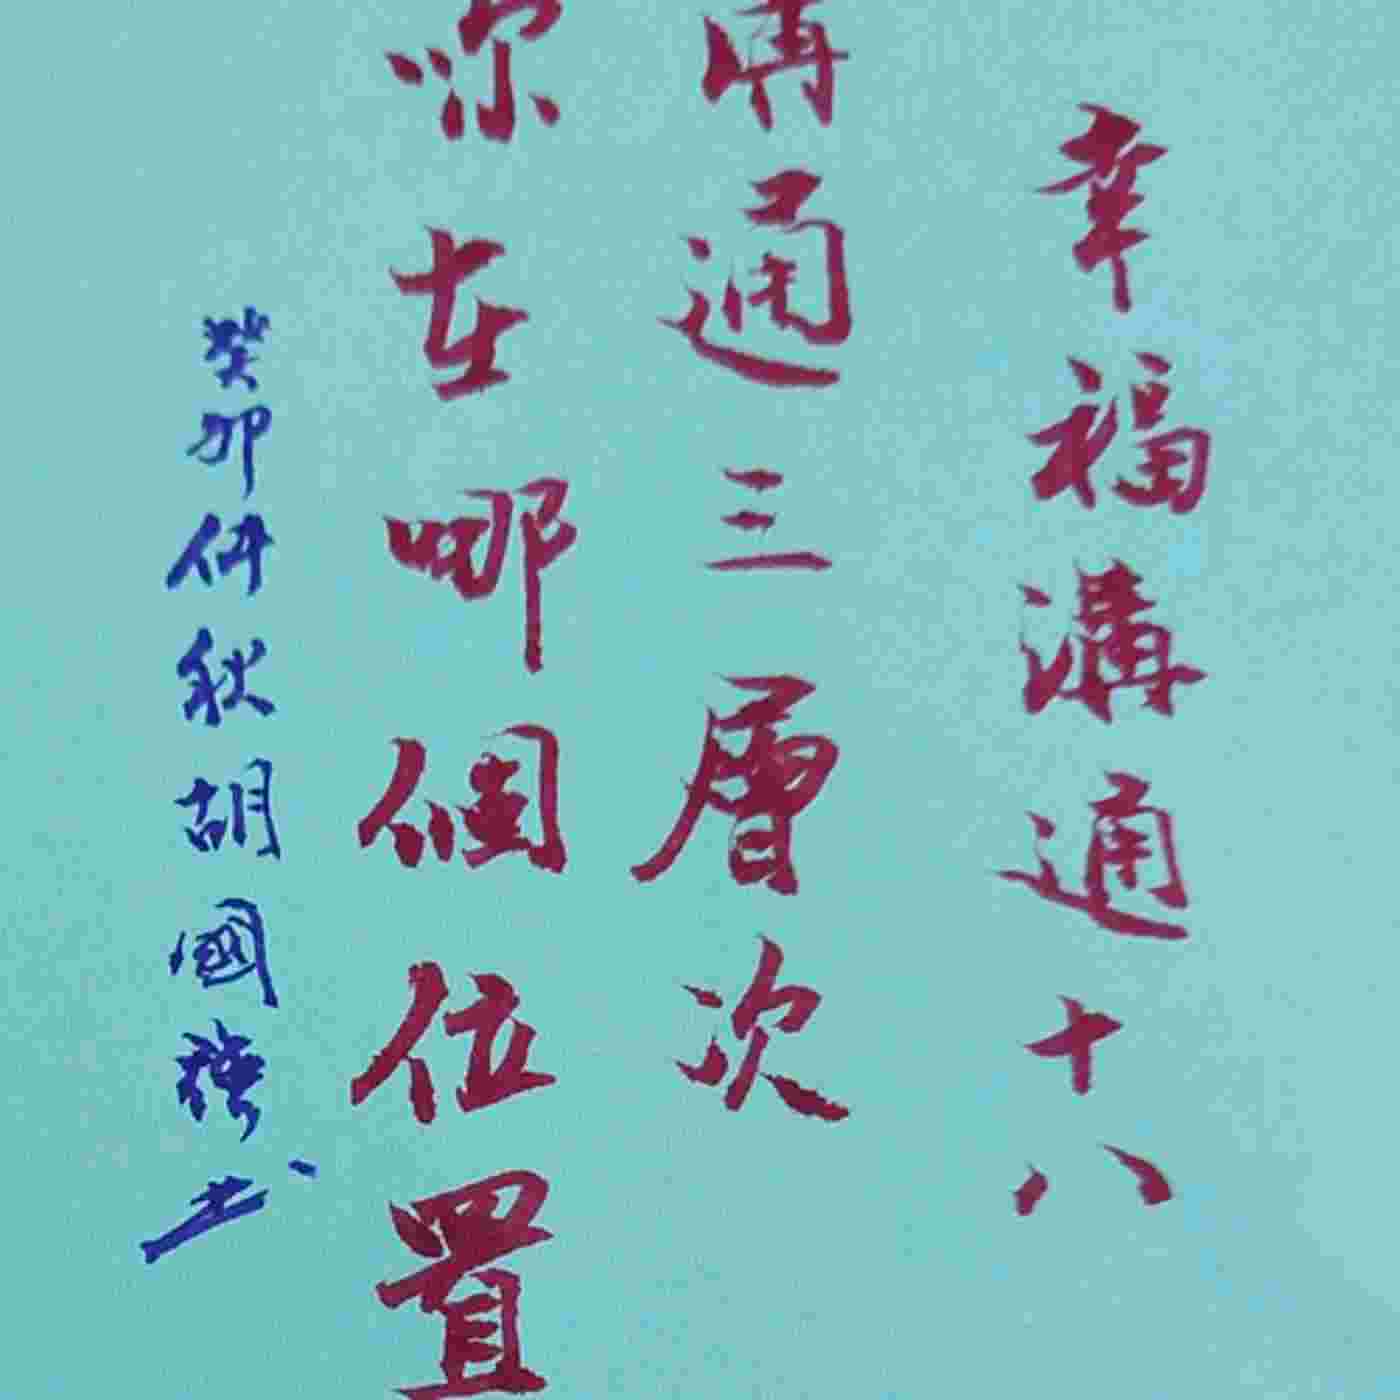 幸福溝通十八
溝通三層次
你在哪個位置
癸卯仲秋胡國書